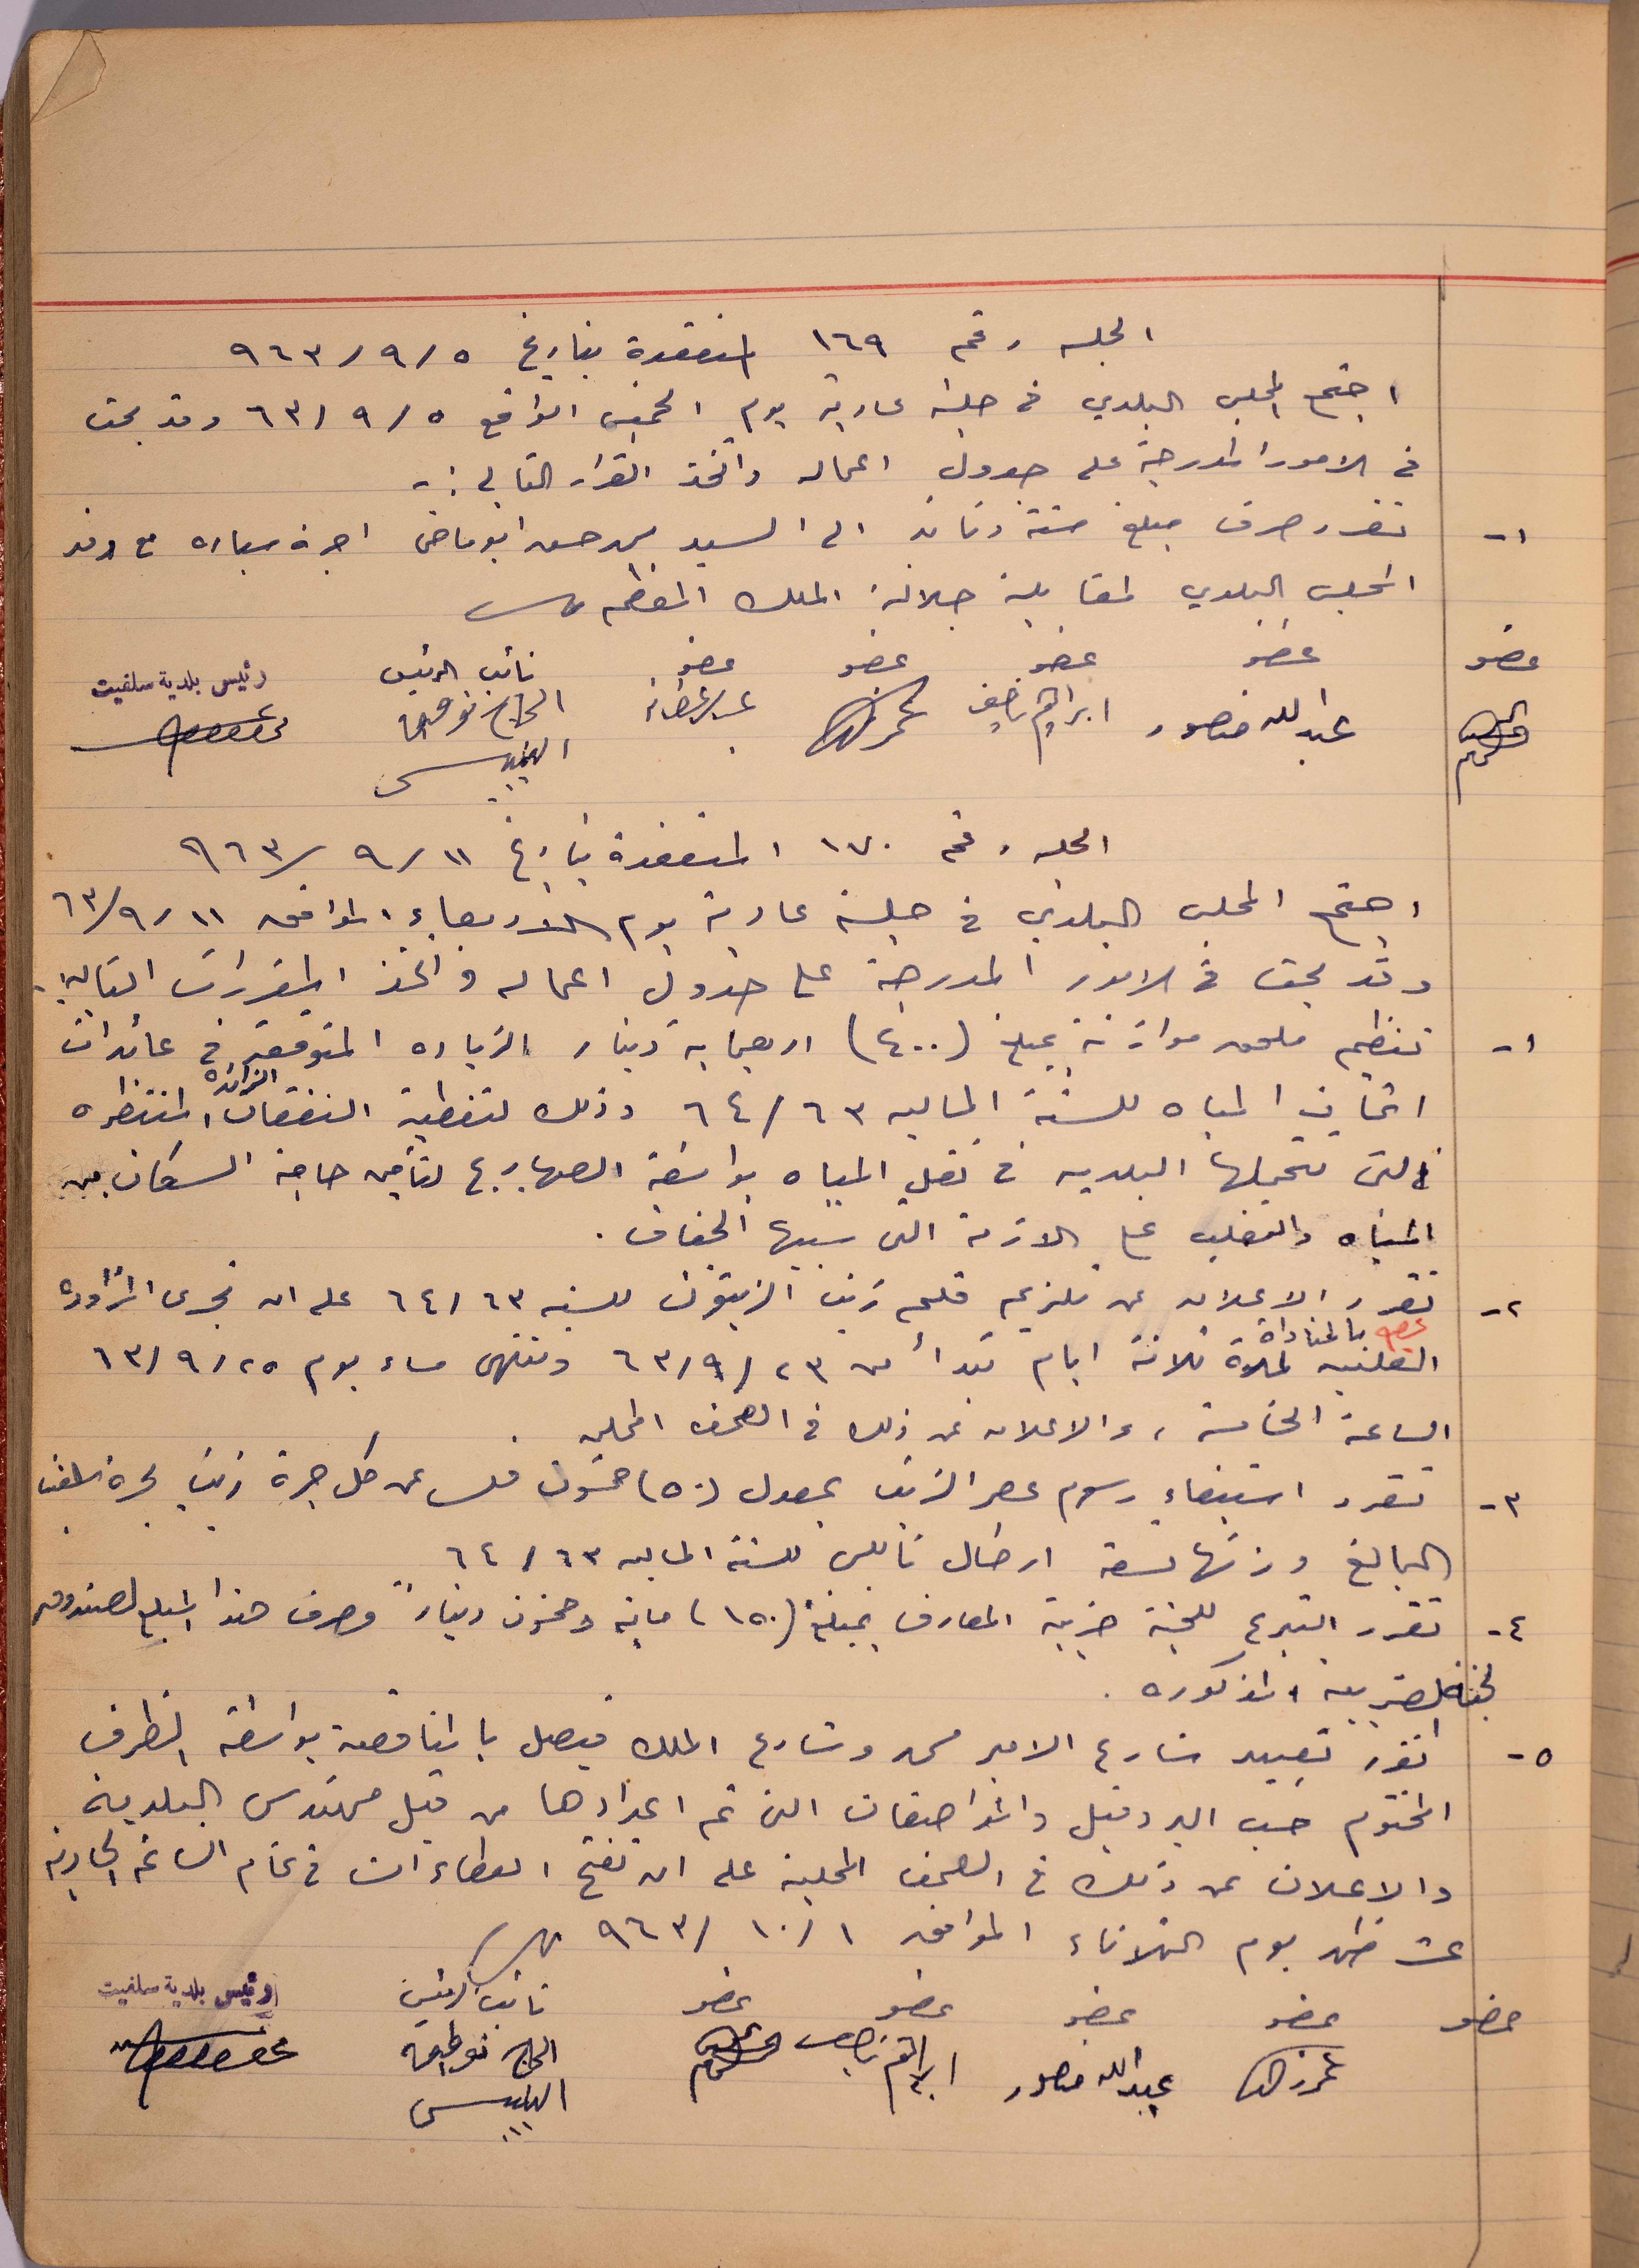 الجلسه رقم ١٦٩ المنعقدة بتاريخ ٥ / ٩ / ٩٦٣
اجتمع المجلس البلدي في جلسة عادية يوم الخميس الواقع ٥ / ٩ / ٦٣ وقد بحث
في الامور المدرجة على جدول اعماله واتخذ القرار التالي :-
١- تقرر صرف مبلغ ستة دنانير الى السيد محمد حسن ابو ماضي اجرة سياره مع وفد
المجلس البلدي لمقابلة جلالة الملك المعظم
عضو عضو عضو عضو عضو نائب الرئيس رئيس بلدية سلفيت
عبدالله منصور ابراهيم ناصيف الحاج توفيق
الجلسه رقم ١٧٠ المنعقدة بتاريخ ١١ / ٩ / ٩٦٣
اجتمع المجلس البلدي في جلسة عادية يوم الاربعاء الموافق ١١ / ٩ / ٦٣
وقد بحث في الامور المدرجة على جدول اعماله واتخذ المقررات التاليه .
١- تنظيم ملحق موازنة بمبلغ (٤٠٠) اربعماية دينار الزياده المتوقعة في عائدات
اثمان المياه للسنة الماليه ٦٣ / ٦٤ وذلك لتغطية النفقات الزائده المنتظره
التي تتحملها البلديه في نقل المياه بواسطة الصهاريج لتأمين حاجة السكان من
المياه والتغلب على الازمة التي سببها الجفاف .
٢- تقرر الاعلان عن تلزيم قلم زيت الزيتون للسنه ٦٣ / ٦٤ على ان تجرى المزاوده
العلنيه بالمناداة لمدة ثلاثة ايام تبدأ من ٢٣ / ٩ / ٦٣ وتنتهي مساء يوم ٢٥ / ٩ / ٦٣
الساعة الخامسة ، والاعلان عن ذلك في الصحف المحليه .
٣- تقرر استيفاء رسوم عصر الزيت بمعدل (٥٠) خمسون فلس عن كل جرة زيت بجرة سلفيت
البالغ وزنها تسعة ارطال نابلسي للسنة الماليه ٦٣ / ٦٤
٤- تقرر التبرع للجنة ضريبة المعارف بمبلغ (١٥٠) ماية وخمسون ديناراً وصرف هذا المبلغ لصندوق
لجنة الضريبة المذكوره .
٥- تقرر تعبيد شارع الامير محمد وشارع الملك فيصل بالمناقصة بواسطة الظرف
المختوم حسب البروفيل والمواصفات التي تم اعدادها من قبل مهندس البلدية
والاعلان عن ذلك في الصحف المحلية على ان تفتح العطاءات في تمام الساعة الحادية
عشر ظهر يوم الثلاثاء الموافق ١ / ١٠ / ٩٦٣
عضو عضو عضو عضو عضو نائب الرئيس رئيس بلدية سلفيت
عبدالله منصور ابراهيم ناصيف الحاج توفيق